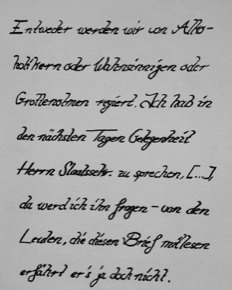 Entweder werden wir von Alko-
holikern oder Wahnsinnigen oder
regiert. Ich hab in
den nächsten Tagen Gelegenheit
Herrn Staatssekr. zu sprechen, [...],
da werd ich ihn fragen – von den
Leuten, die diesen Brief mitlesen
erfährt er's ja doch nicht.